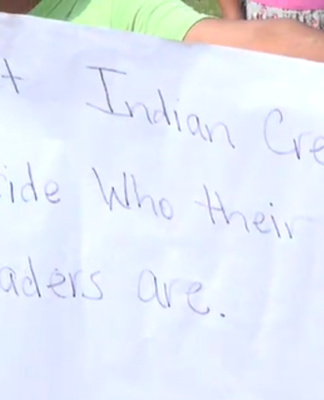 t Indian Cre
ide Who their
aders are.